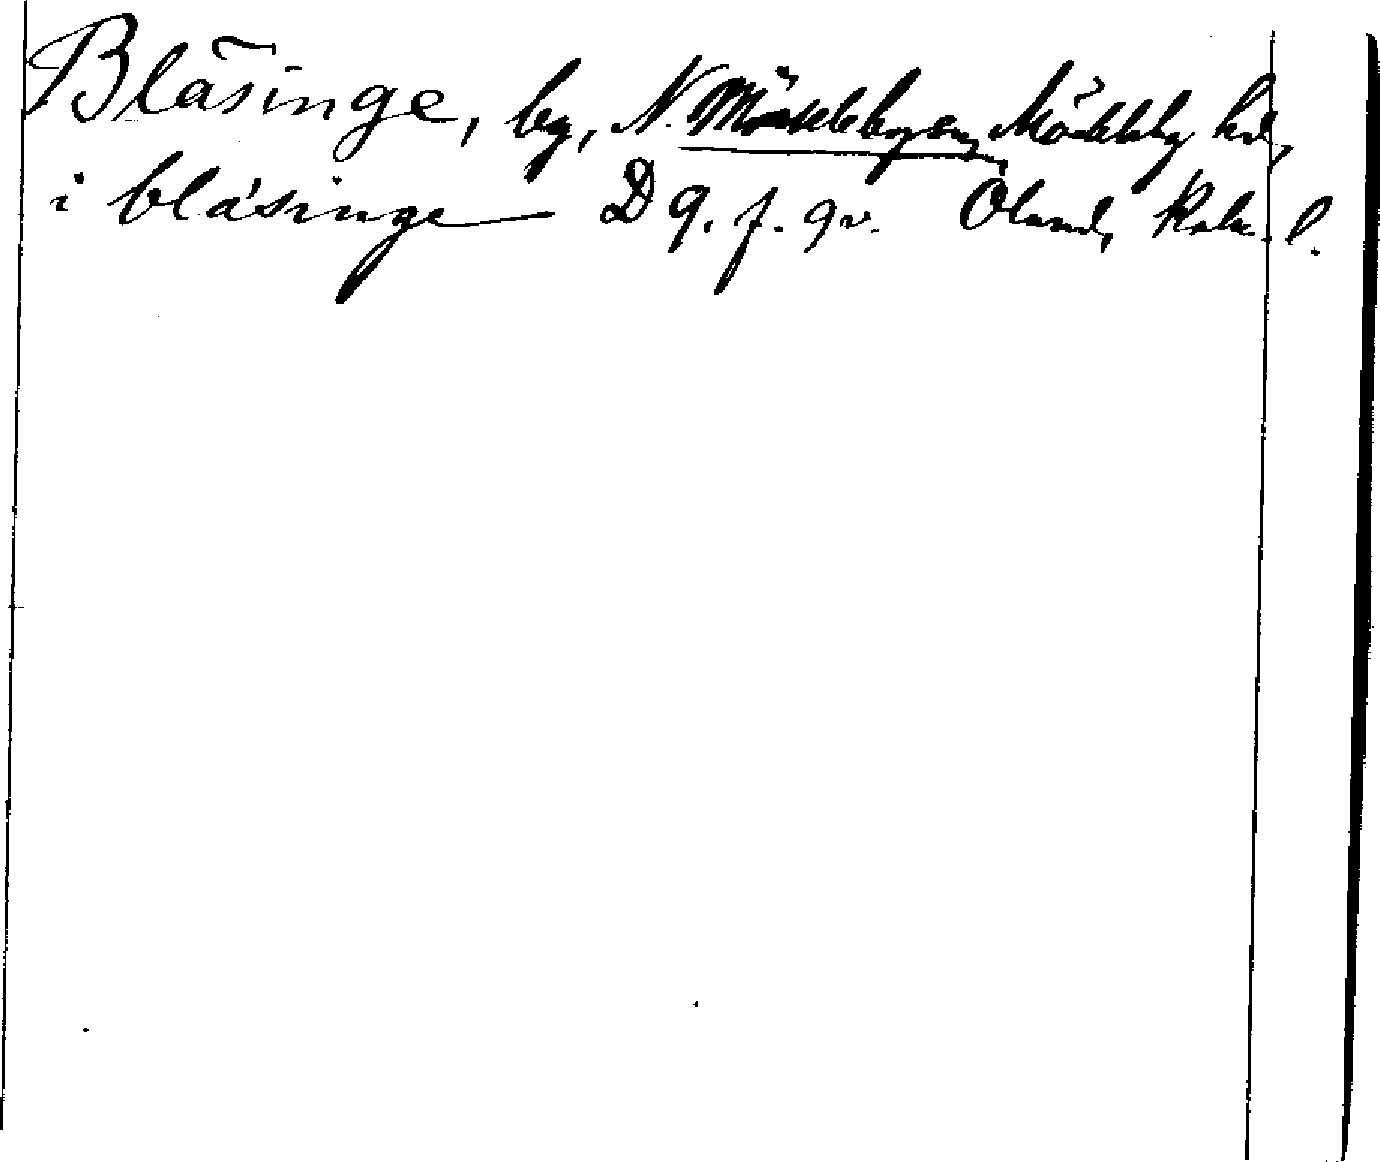 Bläsinge, by, N. Möckleby sn, Möckleby hd,
i bläsinge D 9. f. 9 v. Öland, Kalm. l.